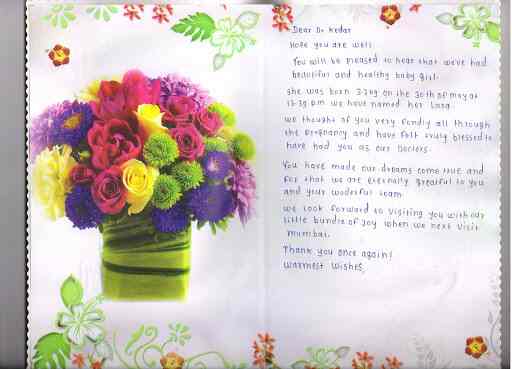 Dear Dr Kedar
Hope you are well.
You will be pleased to hear that we've had
beautiful and healthy baby girl.
she was born 3.2kg on the 30th of may at
we have named her
we thought of you very fondly all through
the pregnancy and have felt truly blessed to
have had you as our Doctors.
You have made our dreams come true and
for that we are eternally greatful to you
and your woderful team
we look forward to visiting you with our
little bundle of joy when we next visit
mumbai.
Thank you once again!
warmest wishes,